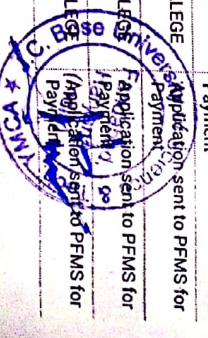 Payment
LEGE
Application sent to PFMS for
Payment
LEGE
Application sent to PFMS for
Payment
LEGE
Application sent to PFMS for
Payment
J. C. Bose University
YMCA ★